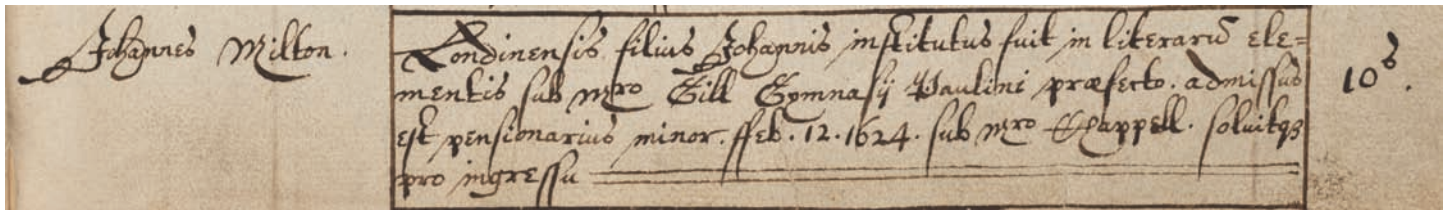 Johannes Milton.
Londinensis filius Johannis institutus fuit in literarũ ele=
mentis sub Mro Gill Gymnasij Paulini præfecto. admissus
est pensionarius minor. ffeb. 12. 1624. sub Mro Chappell. soluitqȝ
pro ingressu
10s.